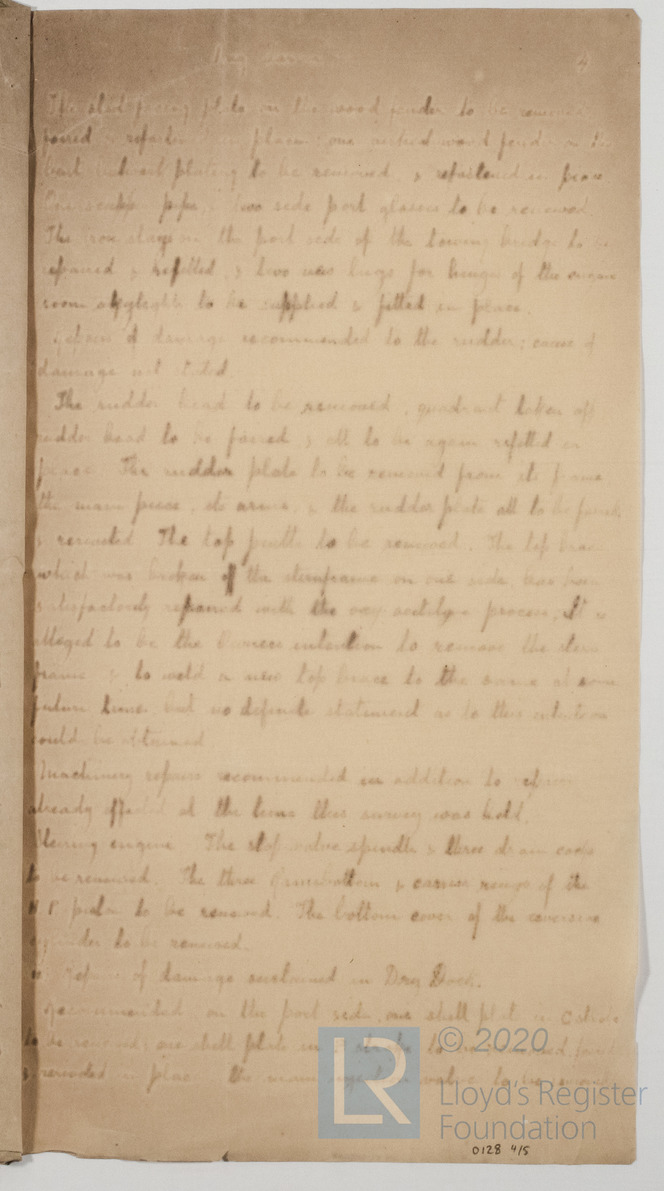 4
The steel facing plate on the wood fender to be removed
faired & refastened in place; one arched wood fender on the
bulwark plating to be removed, & refastened in place
pipe, & two side port glasses to be renewed
The iron stays on the port side of the towing bridge to be
repaired & refitted, & two new lugs for hinges of the engine
room skylights to be supplied & fitted in place.
Repairs of damage recommended to the rudder; cause of
damage not stated.
The rudder head to be removed, quadrant taken off
rudder head to be faired & all to be again refitted in
place. The rudder plate to be removed from its frame
the main piece, its arms, & the rudder plate all to be faired,
& reriveted. The top pintle to be renewed. The top brace
which was broken off the sternframe on one side, has been
satisfactorily repaired with the oxy acetylene process; It is
alleged to be the Owners intention to remove the stern
frame & to weld a new top brace to the same at some
future time, but no definite statement as to this intention
could be obtained
Machinery repairs recommended in addition to repairs
already effected at the time this survey was held.
engine. The stop valve spindle & three drain cocks
to be renewed. The three & carrier rings of the
H.P. piston to be renewed. The bottom cover of the reversing
cylinder to be renewed.
repairs of damage sustained in Dry Dock.
Recommended, on the port side, one shell plate in C strake
to be renewed; one shell plate in strake to be removed, faired
& reriveted in place. The main injection valve to be
LR
© 2020
Lloyd's Register
Foundation
0128 4/5